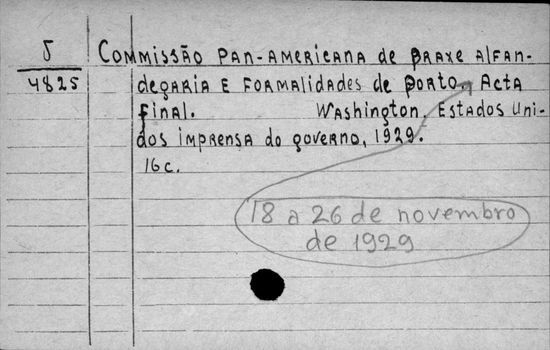 5
4825
Commissão Pan-Americana de praxe alfan-
degaria e formalidades de porto. Acta
final. Washington, Estados Uni-
dos imprensa do governo, 1929.
16c.
18 a 26 de novembro
de 1929